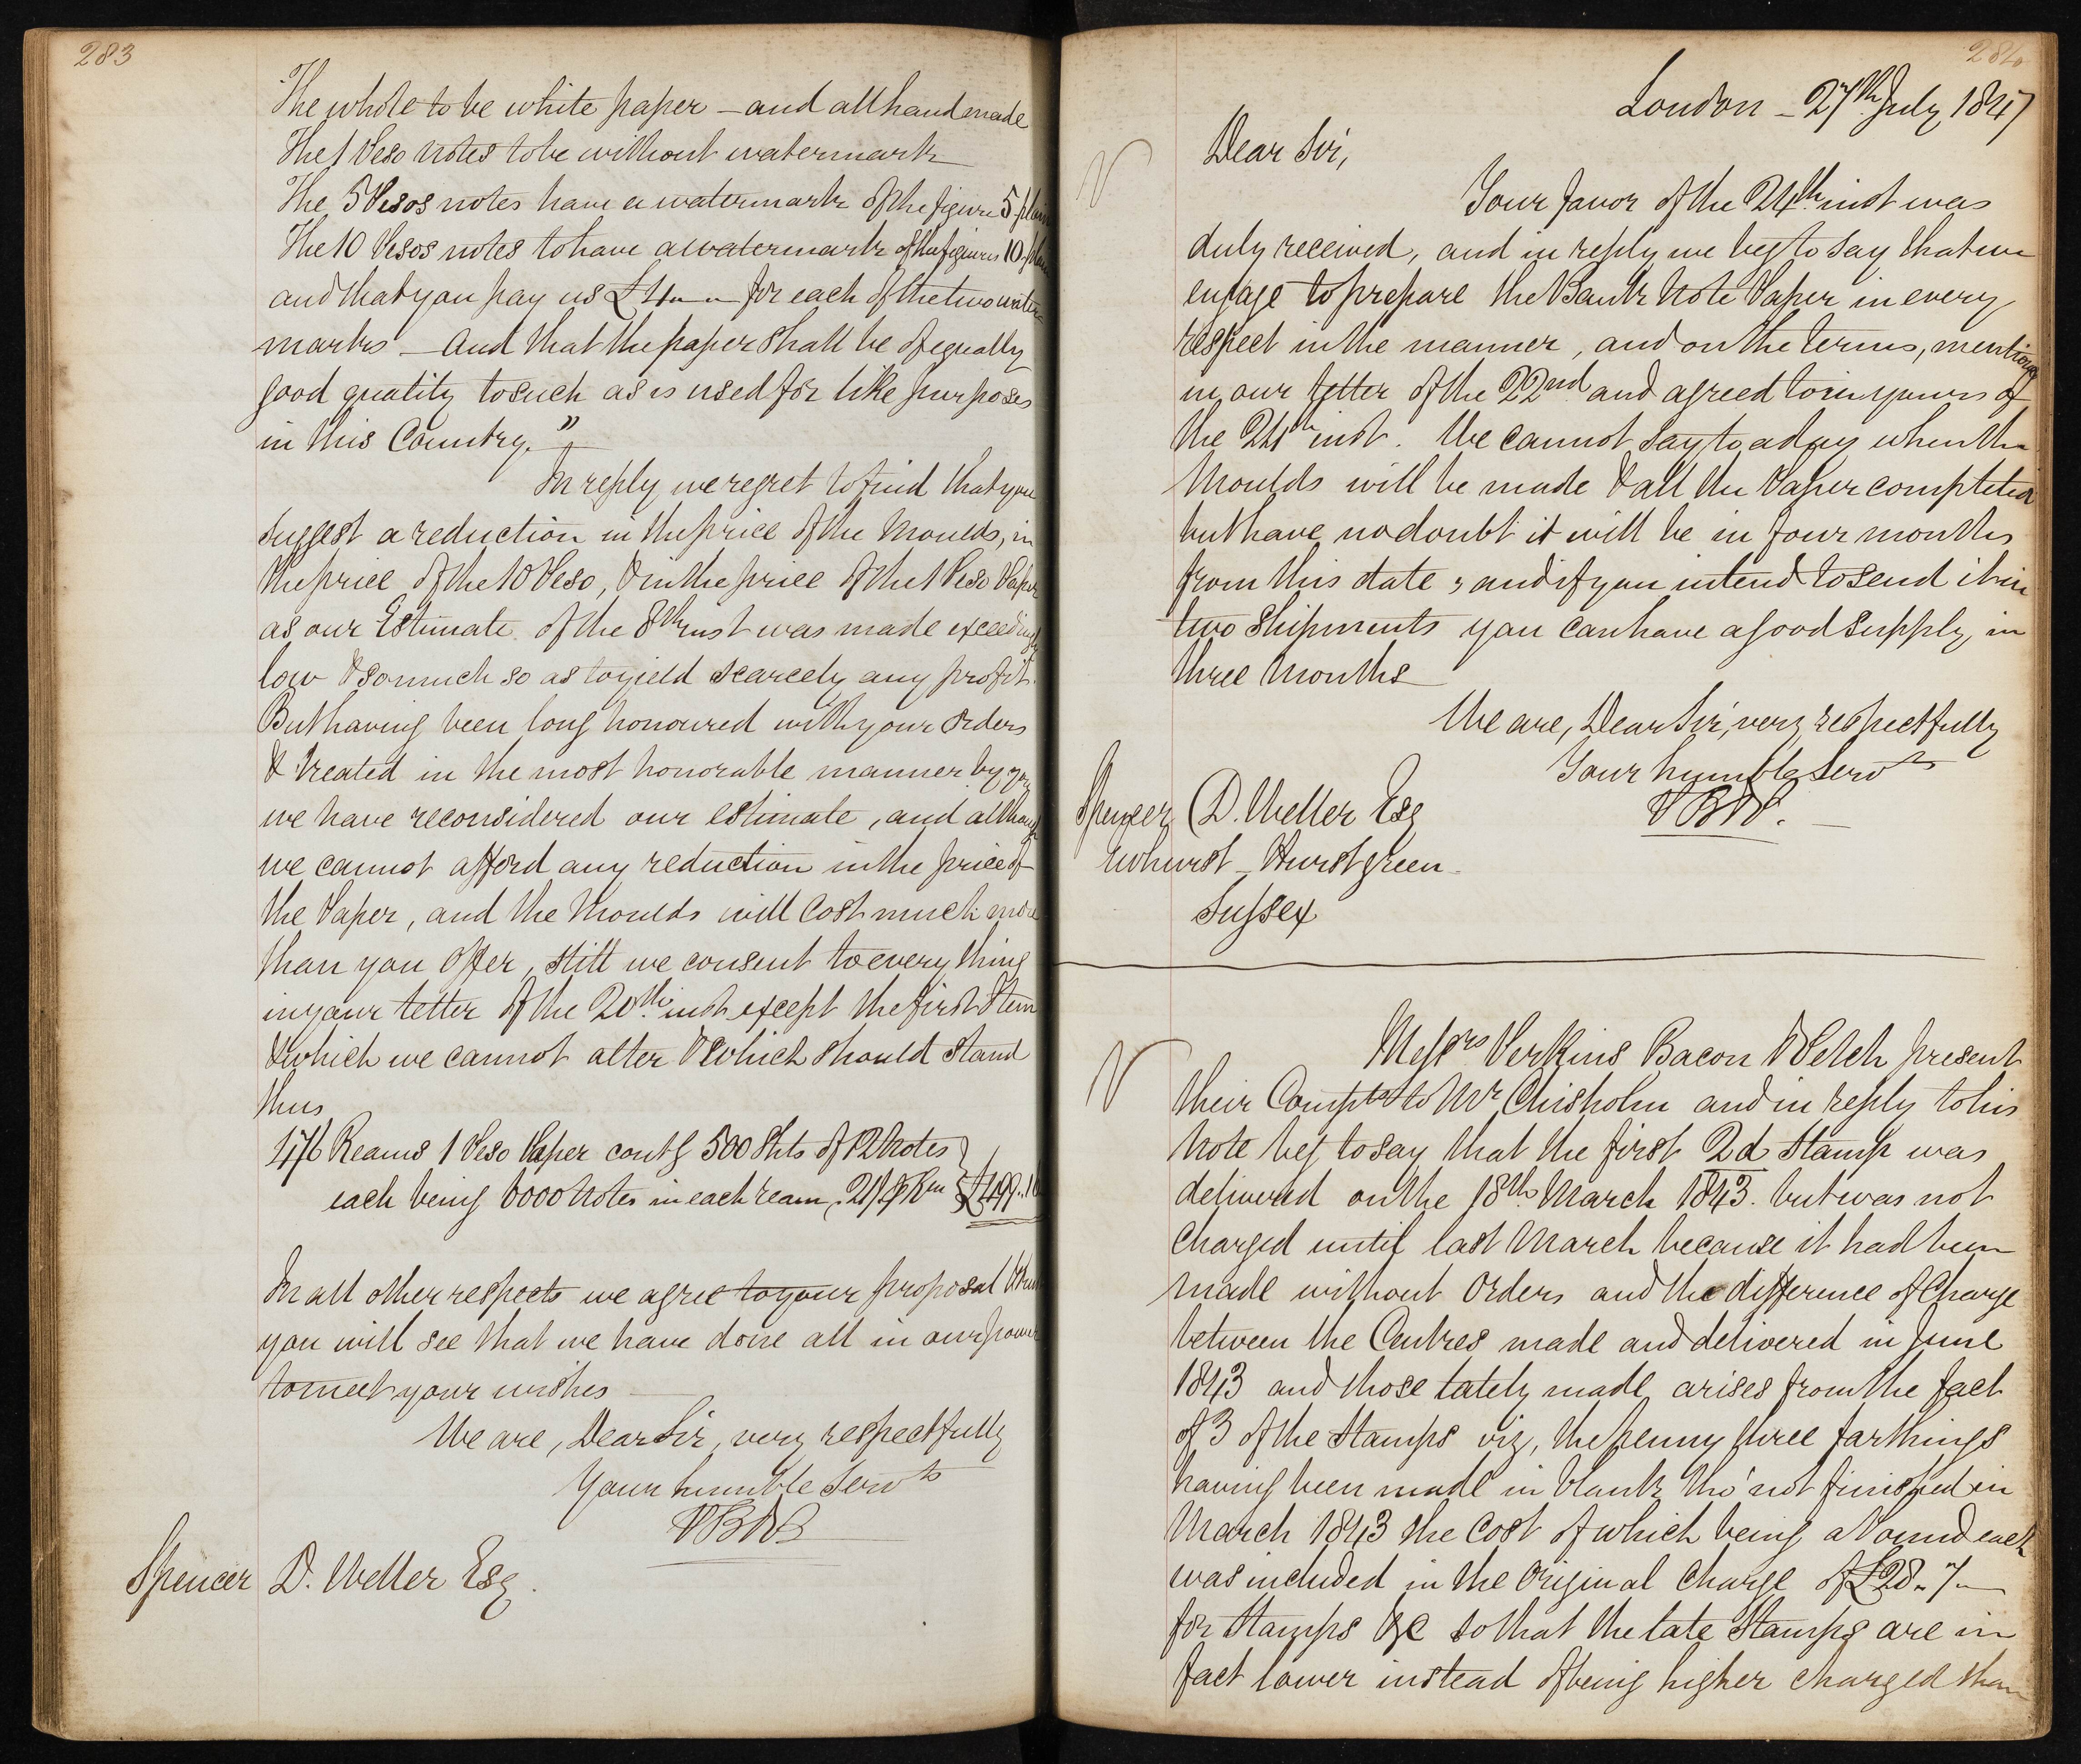 283
The whole to be white paper – and all hand made
The 1 Peso notes to be without watermark
The 5 Pesos notes have a watermark of the figure 5 plain
The 10 Pesos notes to have a watermark of the figures 10 plain
and that you pay us £4 " " for each of the two water
marks – And that the paper shall be of equally
good quality to such as is used for like purposes
in this Country."
In reply we regret to find that you
suggest a reduction in the price of the Moulds, in
the price of the 10 Peso, & in the price of the 1 Peso Paper
as our Estimate of the 8th inst was made exceedingly
low & so much so as to yield scarcely any profit.
But having been long honoured with your orders
& treated in the most honorable manner by you
we have reconsidered our estimate, and although
we cannot afford any reduction in the price of
the Paper, and the Moulds will cost much more
than you offer, still we consent to every thing
in your letter of the 20th inst except the first Item
& which we cannot alter & which should stand
thus
476 Reams 1 Peso Paper contg 500 Shts of 12 Notes
each being 6000 Notes in each ream, 21/ Rm £499..16
In all other respects we agree to your proposal & trust
you will see that we have done all in our power
to meet your wishes
We are, Dear Sir, very respectfully
Your humble Servts
PB&P
Spencer D. Weller Esq.
284
London – 27th July 1847
Dear Sir,
Your favor of the 24th inst was
duly received, and in reply we beg to say that we
engage to prepare the Bank Note Paper in every
respect in the manner, and on the terms, mentioned
in our letter of the 22nd and agreed to in yours of
the 24th inst. We cannot say to a day when the
Moulds will be made & all the Paper completed
but have no doubt it will be in four months
from this date, and if you intend to send it in
two shipments you can have a good supply in
three Months
We are, Dear Sir, very respectfully
Your humble Servts
PB&P.
Spencer D. Weller Esq
Ewhurst – Hurstgreen –
Sussex
Messrs Perkins Bacon & Petch present
their Compts to Mr Chisholm and in reply to his
Note beg to say that the first 2d Stamp was
delivered on the 18th March 1843. but was not
Charged until last March because it had been
made without Orders and the difference of Charge
between the Centres made and delivered in June
1843 and those lately made arises from the fact
of 3 of the Stamps viz, the penny three farthings
having been made in blank tho' not finished in
March 1843 the cost of which being a Pound each
was included in the Original Charge of £28 " 7 "
for Stamps &c so that the late Stamps are in
fact lower instead of being higher charged than